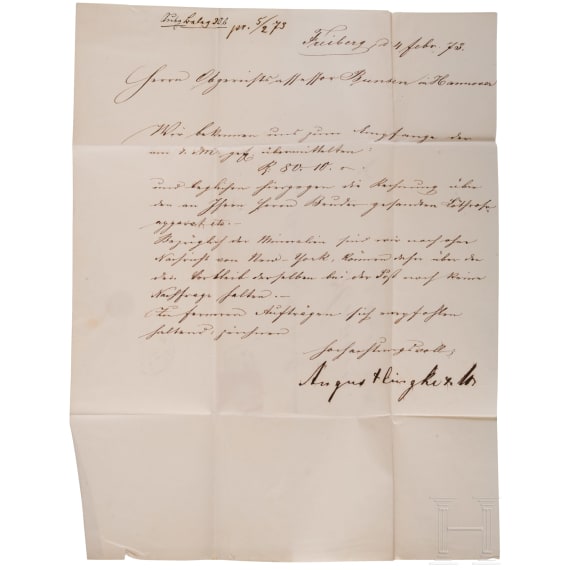 pr. 5/2 73
Freiberg, d 4 febr. 73.
Herrn Obgerichtsassessor Bunsen in Hannover
Wir bekennen uns zum Empfange der
am 2. dM. gef. übermittelten:
R. 80. 10. –
und beglichen hiergegen die Rechnung über
den an Ihren Herrn Bruder gesandten Löthrohr
apparat etc. –
Bezüglich der Mineralien sind wir noch ohne
Nachricht von New-York, können daher über den
Verbleib derselben bei der Post noch keine
Nachfrage halten. –
Zu ferneren Aufträgen sich empfohlen
haltend, zeichnen
hochachtungsvoll,
August Lingke & Co
H